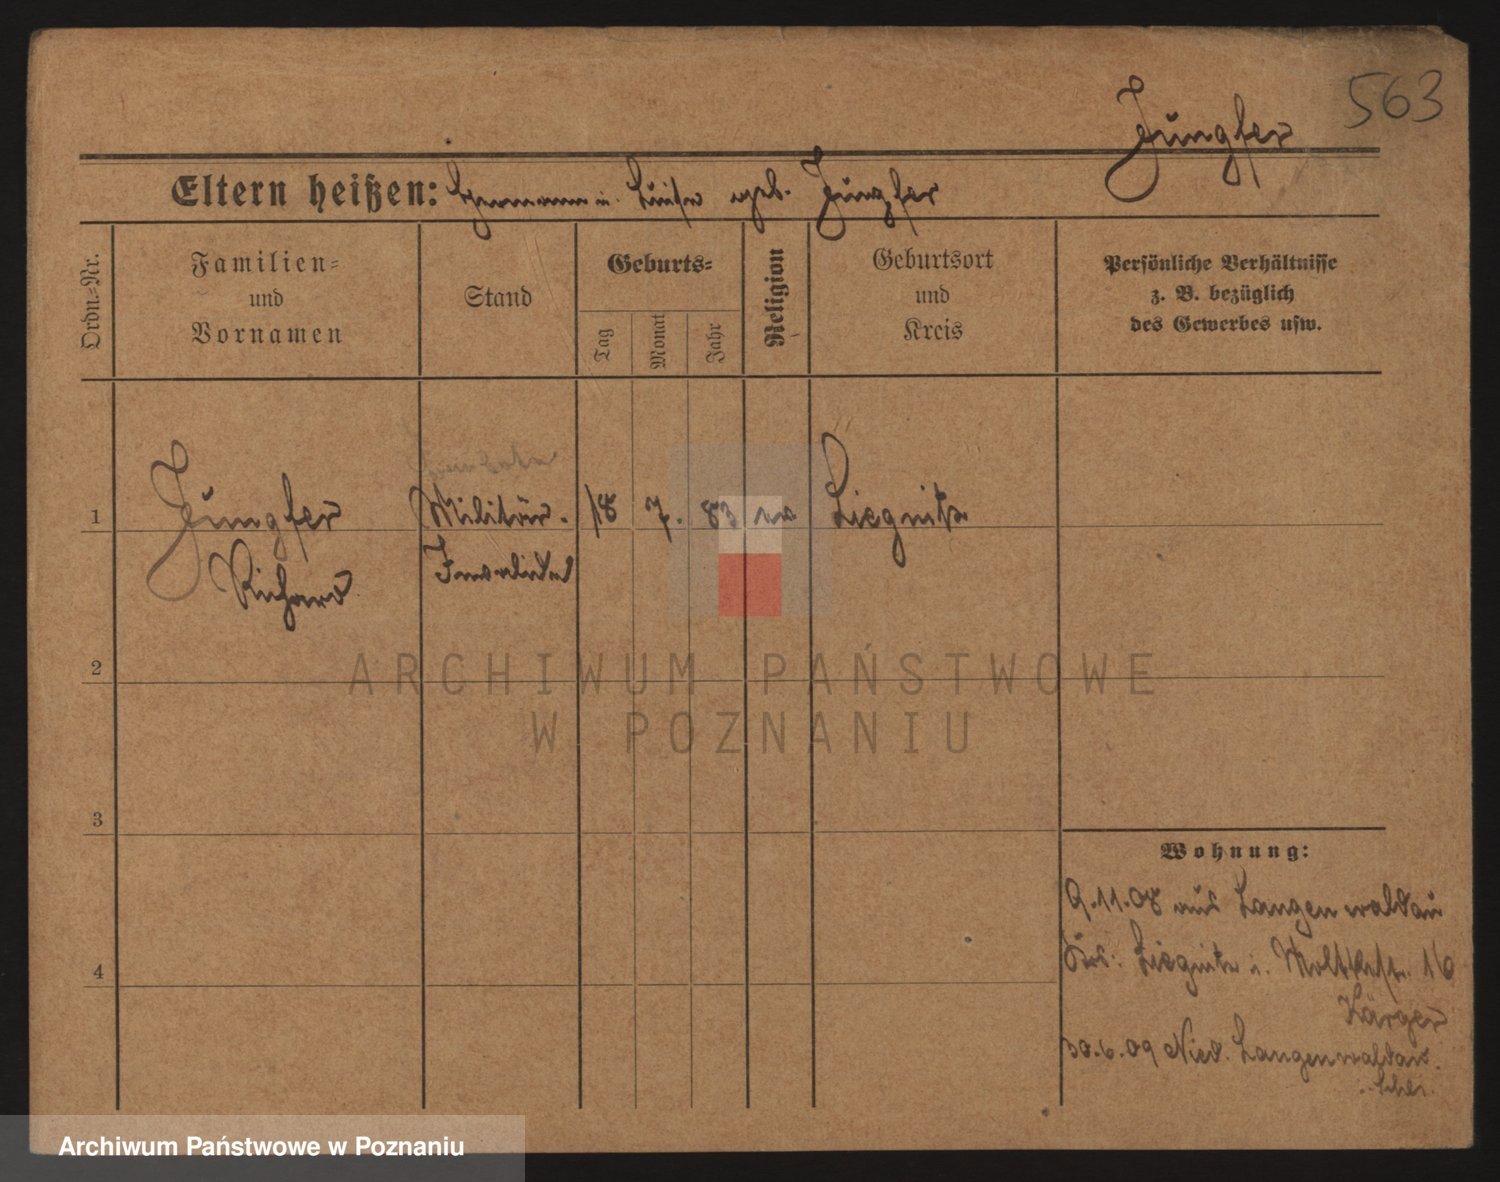 563
Jungfer
Eltern heißen: Hermann u. Luise geb. Jungfer
Ordn.-Nr.
Familien-
und
Vornamen
Stand
Geburts-
Tag
Monat
Jahr
Religion
Geburtsort
und
Kreis
Persönliche Verhältnisse
z. B. bezüglich
des Gewerbes usw.
1
Jungfer
Richard
Militär-
Invalide
18
7.
83
ev
Liegnitz
2
3
4
ARCHIWUM PAŃSTWOWE
W POZNANIU
Wohnung:
9.11.08 aus Langenwaldau
Krs. Liegnitz n. Moltkestr. 16
Kärger
30.6.09 Nied. Langenwaldau.
Archiwum Państwowe w Poznaniu